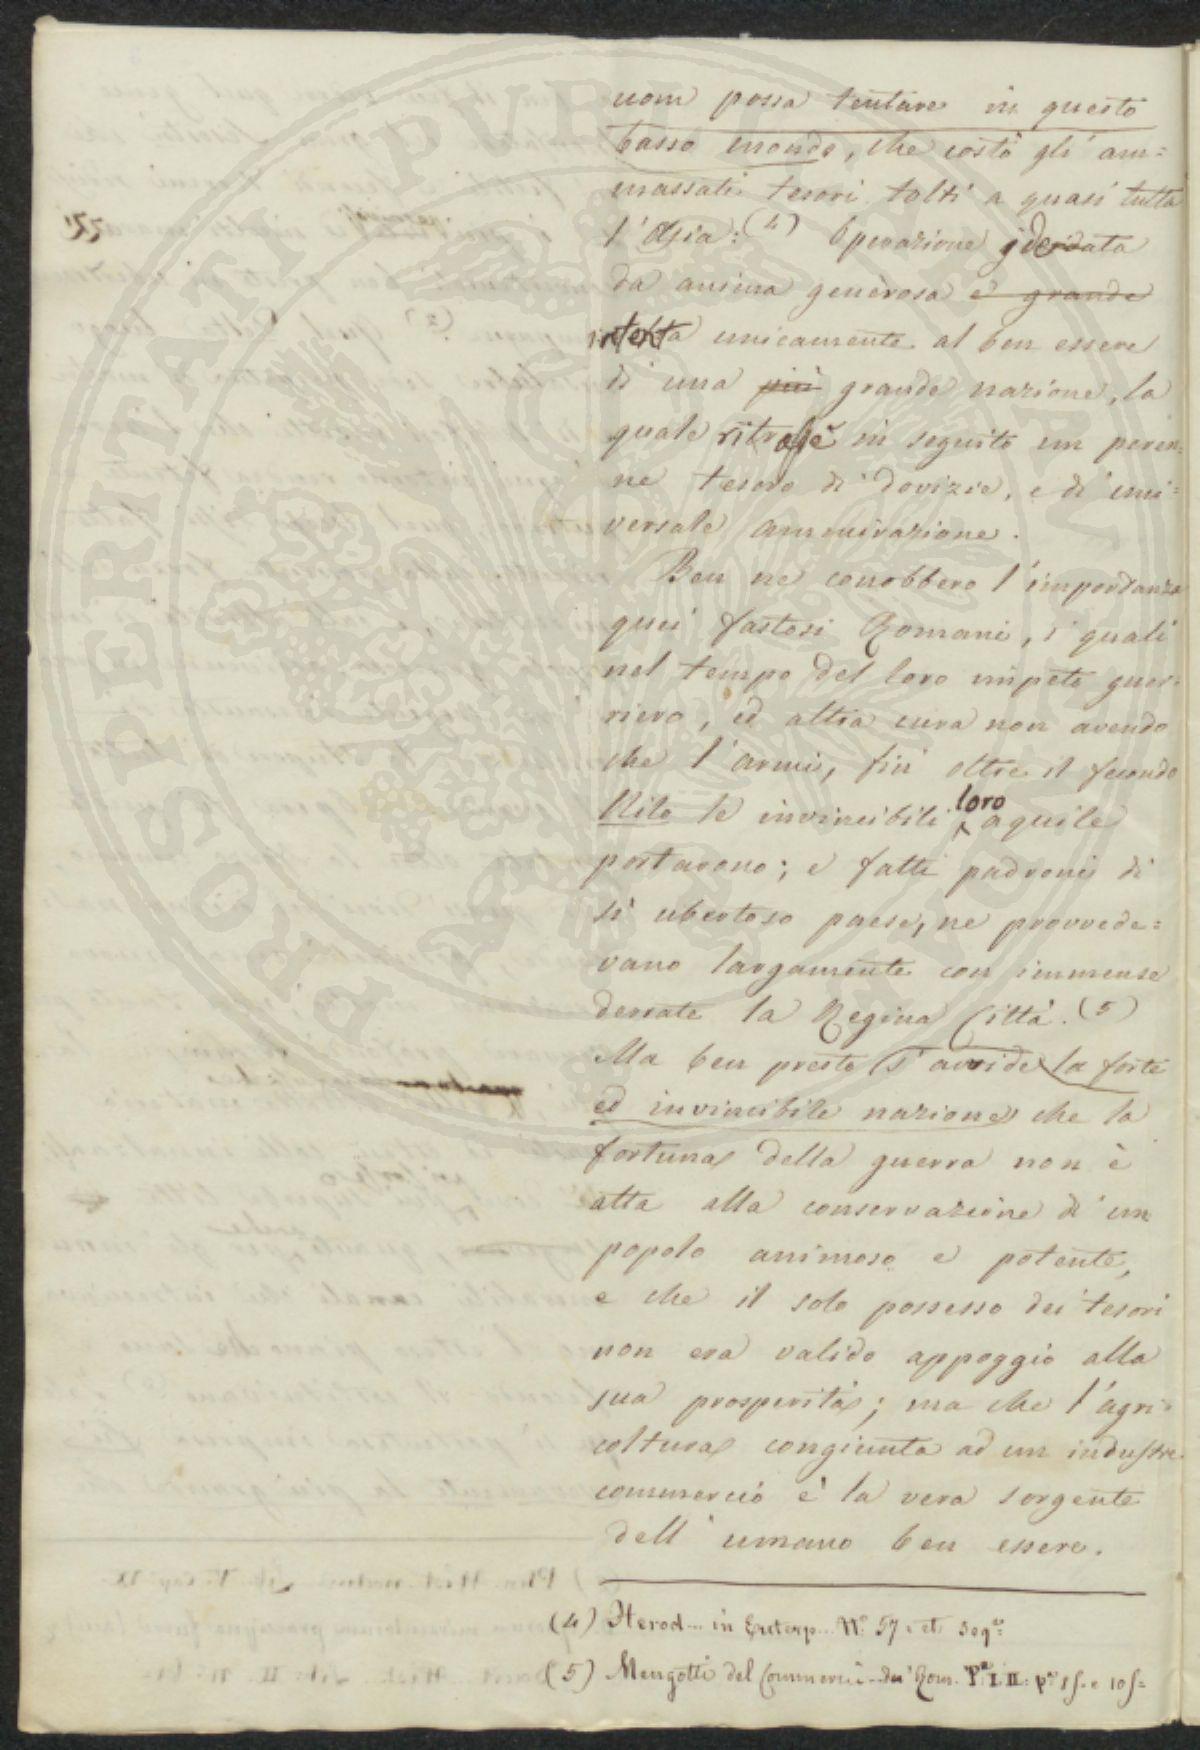 uom possa tentare in questo
basso mondo, che costò gli am=
massati tesori tolti a quasi tutta
l'Asia: (4) Operazione ideata
da anima generosa e grande
intenta unicamente al ben essere
di una più grande nazione, la
quale ritrasse in seguito un peren=
ne tesoro di dovizie, e di uni=
versale ammirazione.
Ben ne conobbero l'importanza
quei fastosi Romani, i quali
nel tempo del loro impeto guer=
riero, ed altra cura non avendo
che l'armi, fin oltre il fecondo
Nilo le invincibili loro aquile
portarono; e fatti padroni di
sì ubertoso paese, ne provvede=
vano largamente con immense
derrate la Regina Città. (5)
Ma ben presto s'avvide la forte
ed invincibile nazione che la
fortuna della guerra non è
atta alla conservazione di un
popolo animoso e potente,
e che il solo possesso dei tesori
non era valido appoggio alla
sua prosperità; ma che l'agri=
coltura congiunta ad un industre
commercio è la vera sorgente
dell'umano ben essere.
(4) Herod... in Euterp... N.° 57. et seq.
(5) Mengotti del Commercio dei Rom. P. I. II:
PROSPERITATI PVBLICAE